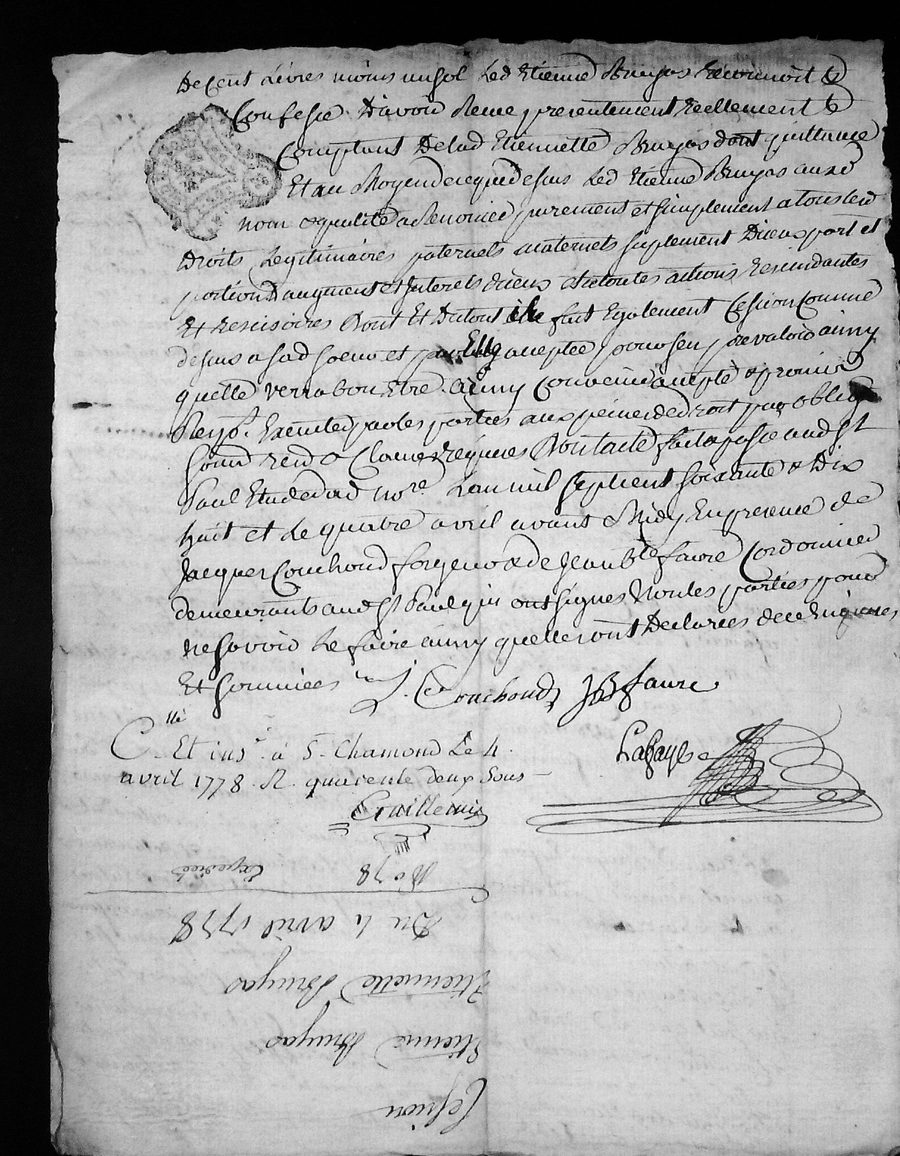 de cent livres moins un sol led Etienne Bruyas reconnoit &
Confesse d'avoir reçue presentement reellement &
Comptant de lad Etiennette Bruyas dont quittance
Et au moyen de ce que desus led Etienne Bruyas aux d
nom & qualité a renoncé purement et simplement a tous les d
droits legitimaires paternels maternels suplement d'iceux part et
portion d'augment et interets d'iceux & de toutes actions rescindantes
Et rescisoires dont Et du tout il fait Egalement Cession Comme
desus a sad soeur et par Elle acceptée pour s'en prevaloir ainsy
quelle verra bon être ainsy Convenu accepté & promis
Executer par les parties aux peines de droit par oblig
Soum renon & Clauses requises dont acte fait & passé aud st
Paul Etude dud nore. L'an mil sept cent soixante & dix
huit et le quatre avril avant midy En presence de
Jacques Couchoud forgeur & de Jean bte faure Cordonnier
demeurants aud st Paul qui ont signés non les parties pour
ne savoir le faire ainsy quelles ont declarées de ce Enquises
Et Sommées
Couchoud JB faure
Lafaye
Clle Et insé. à St. Chamond Le 4.
avril 1778. R. quarente deux Sous
Guillemin
No 78 Expedieé
Du 4 avril 1778
Etiennette Bruyas
Etienne Bruyas
Cession